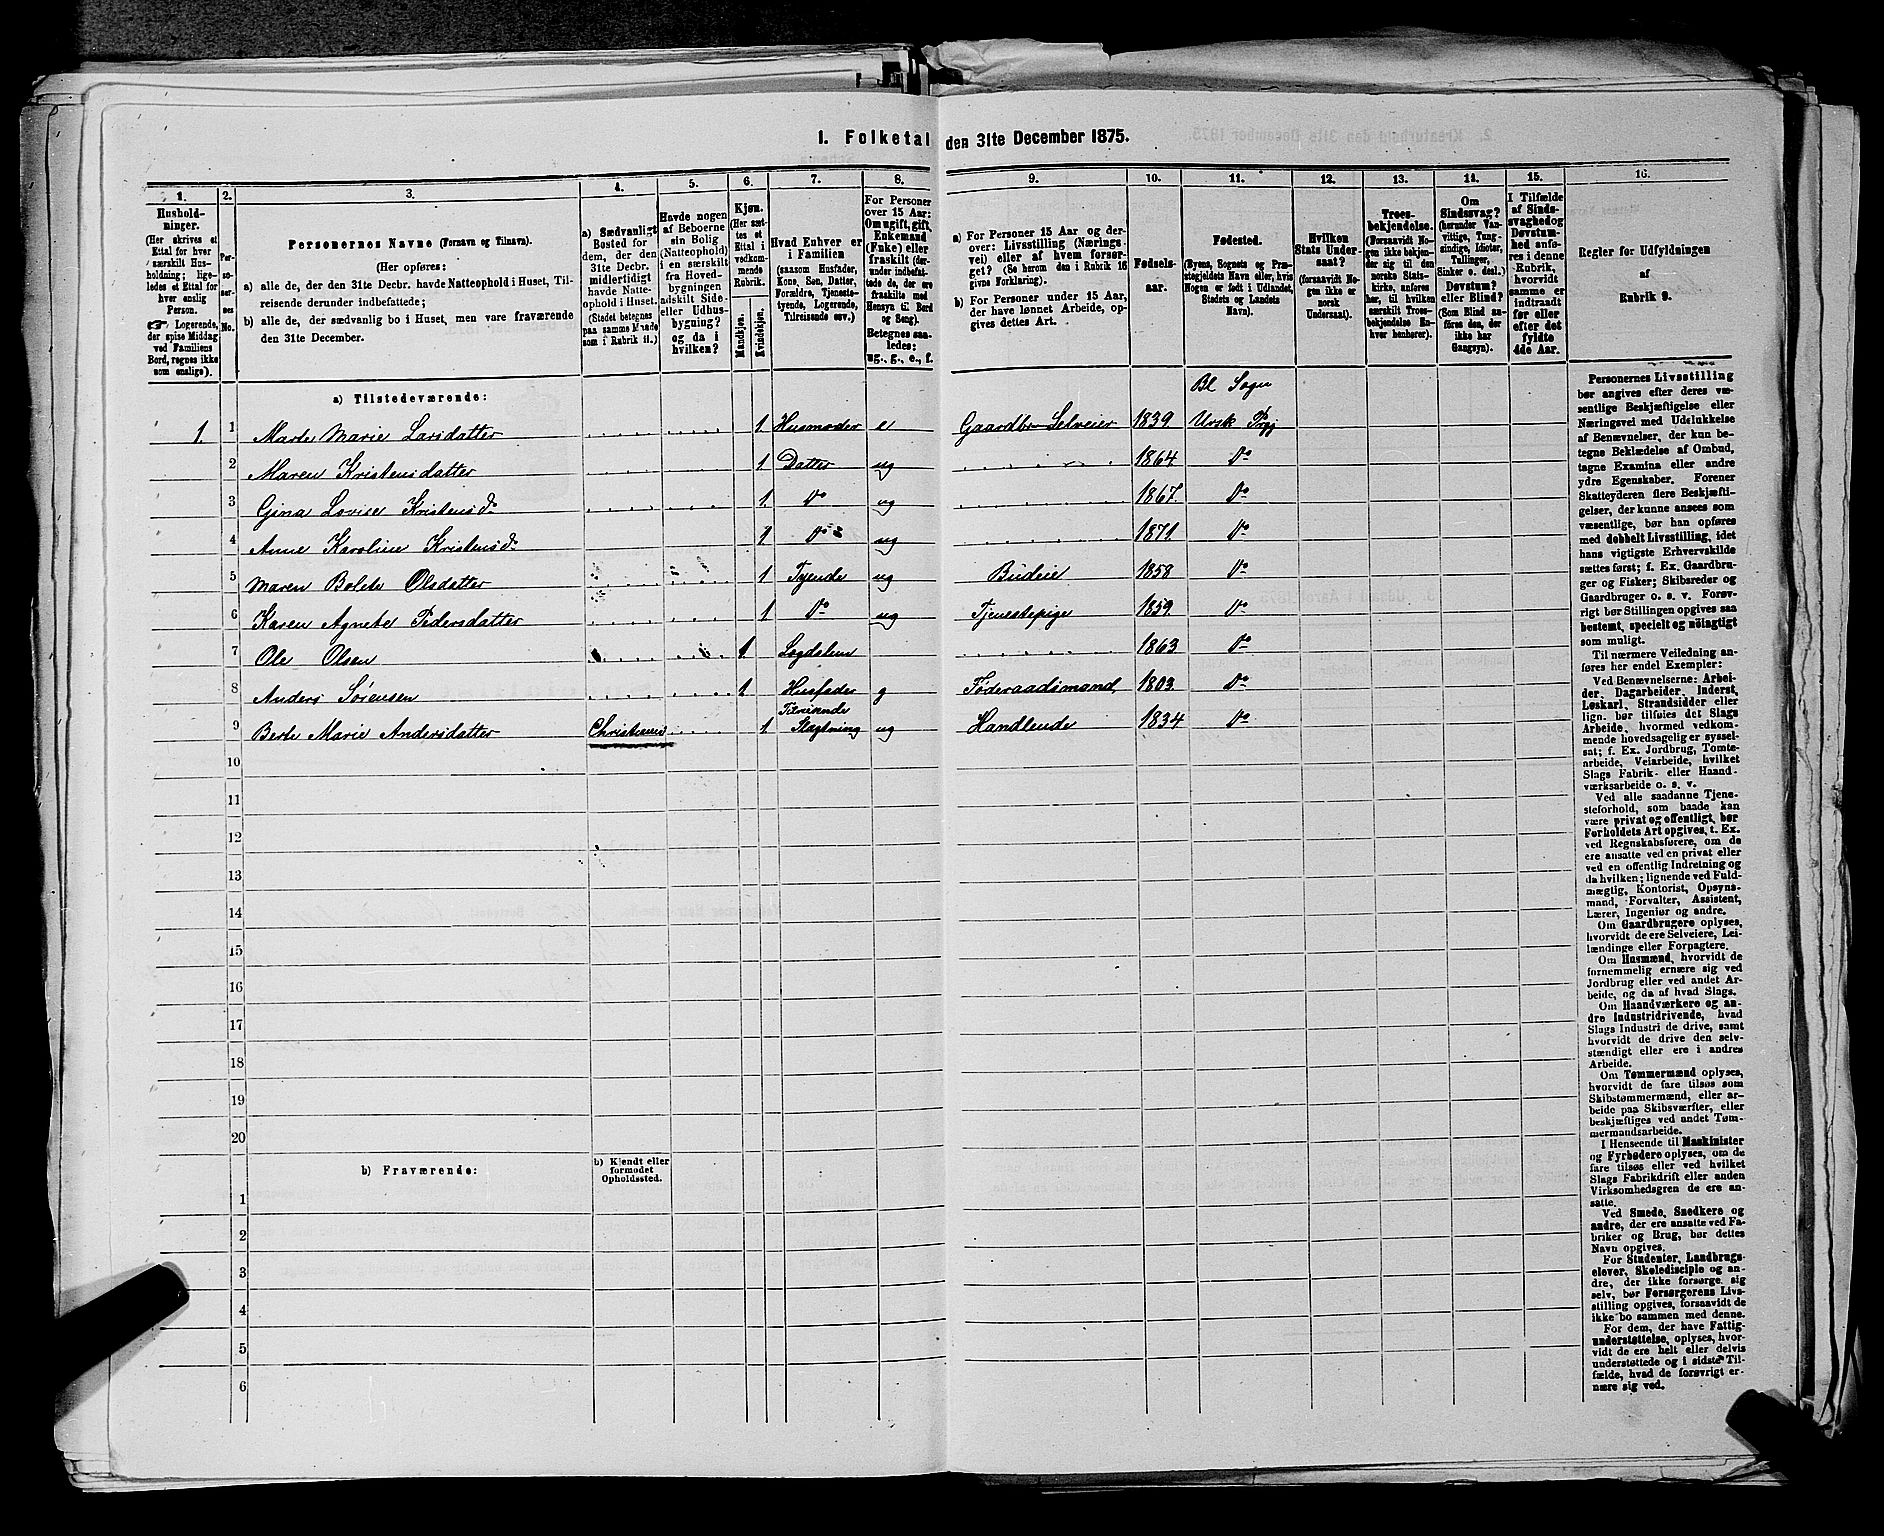 1. Folketal den 31te December 1875.
1. 2. 3. 4. 5. 6. 7. 8. 9. 10. 11. 12. 13. 14. 15. 16.
Hushold-
ninger.
(Her skrives et
Ettal for hver
særskilt Hus-
holdning; lige-
ledes et Ettal for
hver enslig
Person.
☞ Logerende,
der spise Middag
ved Familiens
Bord, regnes ikke
som enslige).
Per-
so-
ner-
nes
No.
Personernes Navne (Fornavn og Tilnavn).
(Her opføres:
a) alle de, der den 31te Decbr. havde Natteophold i Huset, Til-
reisende derunder indbefattede;
b) alle de, der sædvanlig bo i Huset, men vare fraværende
den 31te December.
a) Sædvanligt
Bosted for
dem, der den
31te Decbr.
midlertidigt
havde Natte-
ophold i Huset.
(Stedet betegnes
paa samme Maade
som i Rubrik 11.)
Havde nogen
af Beboerne
sin Bolig
(Natteophold)
i en særskilt
fra Hoved-
bygningen
adskilt Side-
eller Udhus-
bygning?
og da i
hvilken?
Kjøn.
(Her sæt-
tes et
Ettal i
vedkom-
mende
Rubrik.
Mandkjøn.
Kvindekjøn.
Hvad Enhver er
i Familien
(saasom Husfader,
Kone, Søn, Datter,
Forældre, Tjeneste-
tyende, Logerende,
Tilreisende osv.)
For Personer
over 15 Aar:
Om ugift, gift,
Enkemand
(Enke) eller
fraskilt (der-
under indbefat-
tede de, der ere
fraskilte med
Hensyn til Bord
og Seng).
Betegnes saa-
ledes:
ug., g., e., f.
a) For Personer 15 Aar og der-
over: Livsstilling (Nærings-
vei) eller af hvem forsør-
get? (Se herom den i Rubrik 16
givne Forklaring).
b) For Personer under 15 Aar,
der have lønnet Arbeide, op-
gives dettes Art.
Fødsels-
aar.
Fødested.
(Byens, Sognets og Præ-
stegjeldets Navn eller, hvis
Nogen er født i Udlandet,
Stedets og Landets
Navn).
Hvilken
Stats Under-
saat?
(forsaavidt No-
gen ikke er
norsk
Undersaat).
Troes-
bekjendelse.
(Forsaavidt No-
gen ikke bekjen-
der sig til den
norske Stats-
kirke, anføres
her, til hvilken
særskilt Troes-
bekjendelse En-
hver henhører).
Om
Sindssvag?
(herunder Van-
vittige, Tung-
sindige, Idioter,
Tullinger,
Sinker o. desl.)
Døvstum?
eller Blind?
(Som Blind an-
føres den, der
ikke har
Gangsyn).
I Tilfælde
af Sinds-
svaghed og
Døvstum-
hed anfø-
res i denne
Rubrik,
hvorvidt
samme er
indtraadt
før eller
efter det
fyldte
4de Aar.
Regler for Udfyldningen
af
Rubrik 9.
a) Tilstedeværende:
Bl Sogn
1. 1 Marte Marie Larsdatter 1 Husmoder e Gaardbr Selveier 1839 Ursk Prgj
2 Maren Kristensdatter 1 Datter ug 1864. Do
3 Gina Lovise Kristensd. 1 Do ug 1867. Do
4 Anne Karoline Kristensd. 1 Do ug 1871. Do
5 Maren Bolete Olsdatter 1 Tyende ug Budeie 1858 Do
6 Karen Agnete Pedersdatter 1 Do ug Tjenestepige 1859. Do
7 Ole Olsen 1 Logdalem 1863 Do
8 Anders Sørensen 1 Husfader g Føderaadsmand 1803. Do
Tilreisende
9 Berte Marie Andersdatter Christiania 1 Slagtning ug Handlende 1834 Do
10
11
12
13
14
15
16
17
18
19
20
b) Fraværende:
b) Kjendt eller
formodet
Opholdssted.
1
2
3
4
5
6
Personernes Livsstilling
bør angives efter deres væ-
sentlige Beskjæftigelse eller
Næringsvei med Udelukkelse
af Benævnelser, der kun be-
tegne Beklædelse af Ombud,
tagne Examina eller andre
ydre Egenskaber. Forener
Skatteyderen flere Beskjæfti-
gelser, der kunne ansees som
væsentlige, bør han opføres
med dobbelt Livsstilling, idet
hans vigtigste Erhvervskilde
sættes først; f. Ex. Gaardbru-
ger og Fisker; Skibsreder og
Gaardbruger o. s. v. Forøv-
rigt bør Stillingen opgives saa
bestemt, specielt og nöiagtigt
som muligt.
Til nærmere Veiledning an-
føres her endel Exempler:
Ved Benævnelserne: Arbei-
der, Dagarbeider, Inderst,
Løskarl, Strandsidder eller
lign. bør tilføies det Slags
Arbeide, hvormed vedkom-
mende hovedsagelig er syssel-
sat; f. Ex. Jordbrug, Tomte-
arbeide, Veiarbeide, hvilket
Slags Fabrik- eller Haand-
værksarbeide o. s. v.
Ved alle saadanne Tjene-
steforhold, som baade kan
være privat og offentligt, bør
Forholdets Art opgives, t. Ex.
ved Regnskabsførere, om de
ere ansatte ved en privat eller
ved en offentlig Indretning og
da hvilken; lignende ved Fuld-
mægtig, Kontorist, Opsyns-
mand, Forvalter, Assistent,
Lærer, Ingeniør og andre.
Om Gaardbrugere oplyses,
hvorvidt de ere Selveiere, Lei-
lændinge eller Forpagtere.
Om Husmænd, hvorvidt de
fornemmelig ernære sig ved
Jordbrug eller ved andet Ar-
beide, og da af hvad Slags.
Om Haandværkere og an-
dre Industridrivende, hvad
Slags Industri de drive, samt
hvorvidt de drive den selv-
stændigt eller ere i andres
Arbeide.
Om Tømmermænd oplyses,
hvorvidt de fare tilsøs som
Skibstømmermænd, eller ar-
beide paa Skibsværfter, eller
beskjæftiges ved andet Tøm-
mermandsarbeide.
I Henseende til Maskinister
og Fyrbødere oplyses, om de
fare tilsøs eller ved hvilket
Slags Fabrikdrift eller anden
Virksomhedsgren de ere an-
satte.
Ved Smede, Snedkere og
andre, der ere ansatte ved Fa-
briker og Brug, bør dettes
Navn opgives.
For Studenter, Landbrugs-
elever, Skoledisciple og an-
dre, der ikke forsørge sig
selv, bør Forsørgerens Livs-
stilling opgives, forsaavidt de
ikke bo sammen med denne.
For dem, der have Fattig-
understøttelse, oplyses, hvor-
vidt de ere helt eller delvis
understøttede og i sidste Til-
fælde, hvad de forøvrigt er-
nære sig ved.